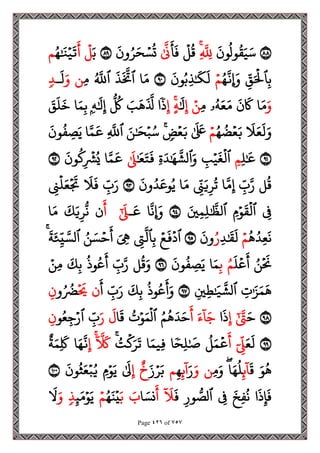 ٨٨ سَيَقُولُونَ لِلَّهِ ۚ قُلْ فَأَنَّىٰ تُسْحَرُونَ ٨٩ بَلْ أَتَيْنَٰهُم
بِٱلْحَقِّ وَإِنَّهُمْ لَكَٰذِبُونَ ٩٠ مَا ٱتَّخَذَ ٱللَّهُ مِن وَلَدٍ
وَمَا كَانَ مَعَهُۥ مِنْ إِلَٰهٍ ۚ إِذًا لَّذَهَبَ كُلُّ إِلَٰهٍۭ بِمَا خَلَقَ
وَلَعَلَا بَعْضُهُمْ عَلَىٰ بَعْضٍ ۚ سُبْحَٰنَ ٱللَّهِ عَمَّا يَصِفُونَ
٩١ عَٰلِمِ ٱلْغَيْبِ وَٱلشَّهَٰدَةِ فَتَعَٰلَىٰ عَمَّا يُشْرِكُونَ ٩٢
قُل رَّبِّ إِمَّا تُرِيَنِّى مَا يُوعَدُونَ ٩٣ رَبِّ فَلَا تَجْعَلْنِى
فِى ٱلْقَوْمِ ٱلظَّٰلِمِينَ ٩٤ وَإِنَّا عَلَىٰٓ أَن نُّرِيَكَ مَا
نَعِدُهُمْ لَقَٰدِرُونَ ٩٥ ٱدْفَعْ بِٱلَّتِى هِىَ أَحْسَنُ ٱلسَّيِّئَةَ ۚ
نَحْنُ أَعْلَمُ بِمَا يَصِفُونَ ٩٦ وَقُل رَّبِّ أَعُوذُ بِكَ مِنْ
هَمَزَٰتِ ٱلشَّيَٰطِينِ ٩٧ وَأَعُوذُ بِكَ رَبِّ أَن يَحْضُرُونِ
٩٨ حَتَّىٰٓ إِذَا جَآءَ أَحَدَهُمُ ٱلْمَوْتُ قَالَ رَبِّ ٱرْجِعُونِ
٩٩ لَعَلِّىٓ أَعْمَلُ صَٰلِحًا فِيمَا تَرَكْتُ ۚ كَلَّآ ۚ إِنَّهَا كَلِمَةٌ
هُوَ قَآئِلُهَا ۖ وَمِن وَرَآئِهِم بَرْزَخٌ إِلَىٰ يَوْمِ يُبْعَثُونَ ١٠٠
فَإِذَا نُفِخَ فِى ٱلصُّورِ فَلَآ أَنسَابَ بَيْنَهُمْ يَوْمَئِذٍ وَلَا
Page ٤٢٦ of ٧٥٧